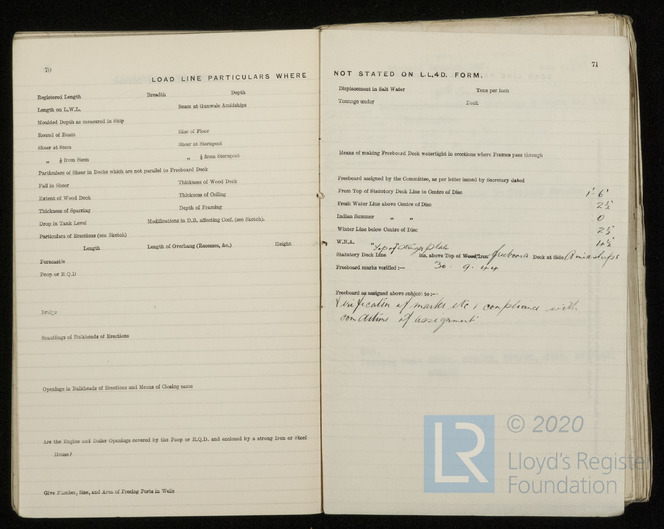 70
LOAD LINE PARTICULARS WHERE
Registered Length Breadth Depth
Length on L.W.L. Beam at Gunwale Amidships
Moulded Depth as measured in Ship
Round of Beam Rise of Floor
Sheer at Stem Sheer at Sternpost
„ ⅛ from Stem „ ⅛ from Sternpost
Particulars of Sheer in Decks which are not parallel to Freeboard Deck
Fall in Sheer Thickness of Wood Deck
Extent of Wood Deck Thickness of Ceiling
Thickness of Sparring Depth of Framing
Drop in Tank Level Modifications in D.B. affecting Coef. (see Sketch).
Particulars of Erections (see Sketch)
Length Length of Overhang (Recesses, &c.) Height
Forecastle
Poop or R.Q.D
Bridge
Scantlings of Bulkheads of Erections
Openings in Bulkheads of Erections and Means of Closing same
Are the Engine and Boiler Openings covered by the Poop or R.Q.D. and enclosed by a strong Iron or Steel
House?
Give Number, Size, and Area of Freeing Ports in Wells
71
NOT STATED ON L.L.4D. FORM.
Displacement in Salt Water Tons per Inch
Tonnage under Deck
Means of making Freeboard Deck watertight in erections where Frames pass through
Freeboard assigned by the Committee, as per letter issued by Secretary dated
From Top of Statutory Deck Line to Centre of Disc 1' 6"
Fresh Water Line above Centre of Disc 2½
Indian Summer „ „ 0
Winter Line below Centre of Disc 2½
W.N.A.
"Top of Stringer plate
Statutory Deck Line ins. above Top of Wood/Iron freeboard Deck at Side (Amidships
Freeboard marks verified :— 30. 9. 44
Freeboard as assigned above subject to :—
Verification of marks etc & compliance with
conditions of assignment
© 2020
LR
Lloyd's Register
Foundation